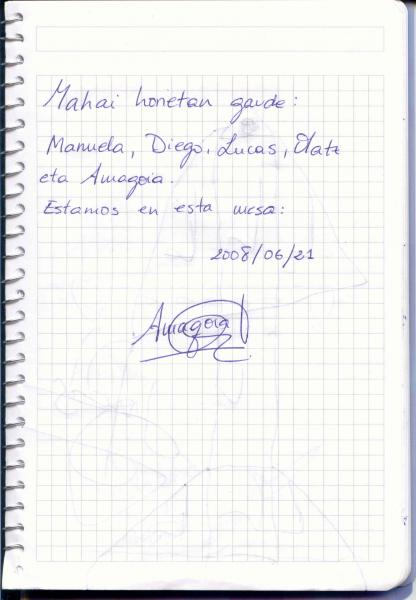 Mahai honetan gaude:
Manuela, Diego, Lucas, Olatz
eta Amagoia.
Estamos en esta mesa:
2008/06/21
Amagoia